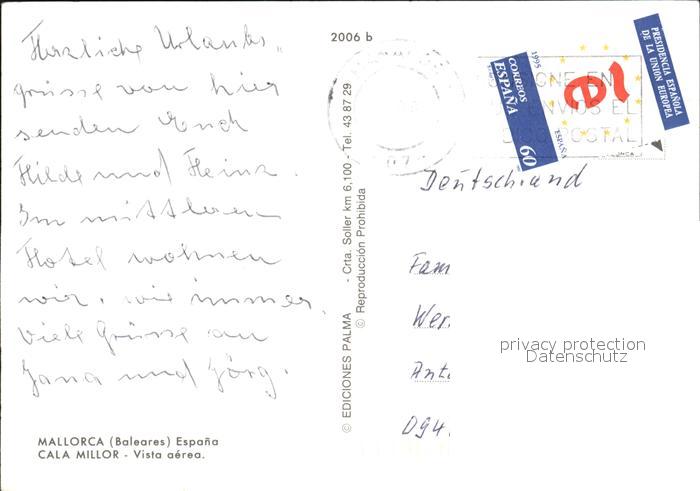 Herzliche Urlaubs„
grüsse von hier
senden Euch
Hilde und Heinz.
Im mittleren
Hotel wohnen
wir, wie immer.
Viele Grüsse an
Jana und Jörg.
MALLORCA (Baleares) España
CALA MILLOR - Vista aérea.
2006 b
© EDICIONES PALMA - Crta. Soller km 6,100 - Tel. 43 87 29
© Reproducción Prohibida
1995
CORREOS
ESPAÑA
60
ESPAÑA
PRESIDENCIA ESPAÑOLA
DE LA UNION EUROPEA
EN
ENVIOS EL
POSTAL
Deutschland
Fam
Wer
Ant
094
privacy protection
Datenschutz